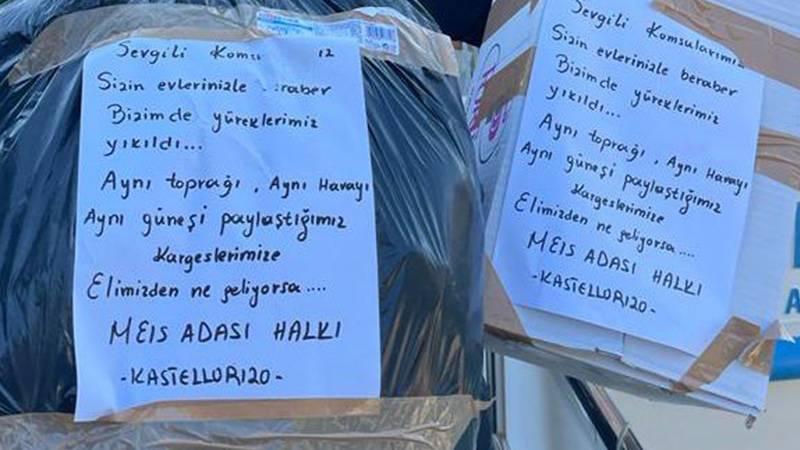 Sevgili Komsu 12
Sizin evlerinizle beraber
Bizimde yüreklerimiz
yıkıldı...
Aynı toprağı , Aynı Havayı
Aynı güneşi paylaştığımız
Kargeslerimize
Elimizden ne geliyorsa....
MEIS ADASI HALKI
-KASTELLORIZO-
Sevgili Komsularımız
Sizin evlerinizle beraber
Bizimde yüreklerimiz
yıkıldı...
Aynı toprağı , Aynı Havayı
Aynı güneşi paylaştığımız
Kargeslerimize
Elimizden ne geliyorsa....
MEIS ADASI HALKI
-KASTELLORIZO-